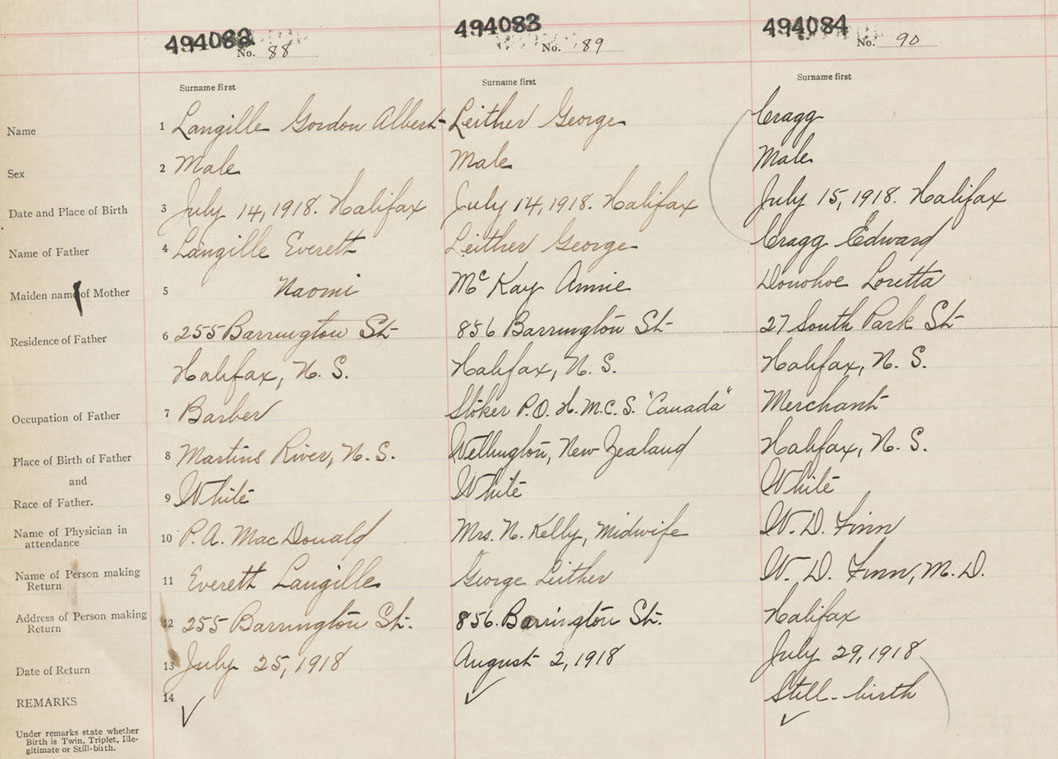 494082 494083 494084
No. 88 No. 89 No. 90
Surname first Surname first Surname first
Name 1 Langille Gordon Albert- Leither George Cragg
Sex 2 Male Male Male
Date and Place of Birth 3 July 14, 1918. Halifax July 14, 1918. Halifax July 15, 1918. Halifax
Name of Father 4 Langille Everett Leither George Cragg Edward
Maiden name of Mother 5 Naomi McKay Annie Donohoe Loretta
Residence of Father 6 255 Barrington St- 856 Barrington St- 27 South Park St-
Halifax, N. S. Halifax, N. S. Halifax, N. S.
Occupation of Father 7 Barber Stoker P.O. H.M.C.S. "Canada" Merchant
Place of Birth of Father 8 Martins River, N.S. Wellington, New Zealand Halifax, N. S.
and
Race of Father. 9 White White White
Name of Physician in attendance 10 P.A. MacDonald Mrs. N. Kelly, Midwife W. D. Finn
Name of Person making Return 11 Everett Langille George Leither W. D. Finn, M. D.
Address of Person making Return 12 255 Barrington St. 856. Barrington St. Halifax
Date of Return 13 July 25, 1918 August 2, 1918 July 29, 1918
REMARKS 14 Still-birth
Under remarks state whether
Birth is Twin, Triplet, Ille-
gitimate or Still-birth.